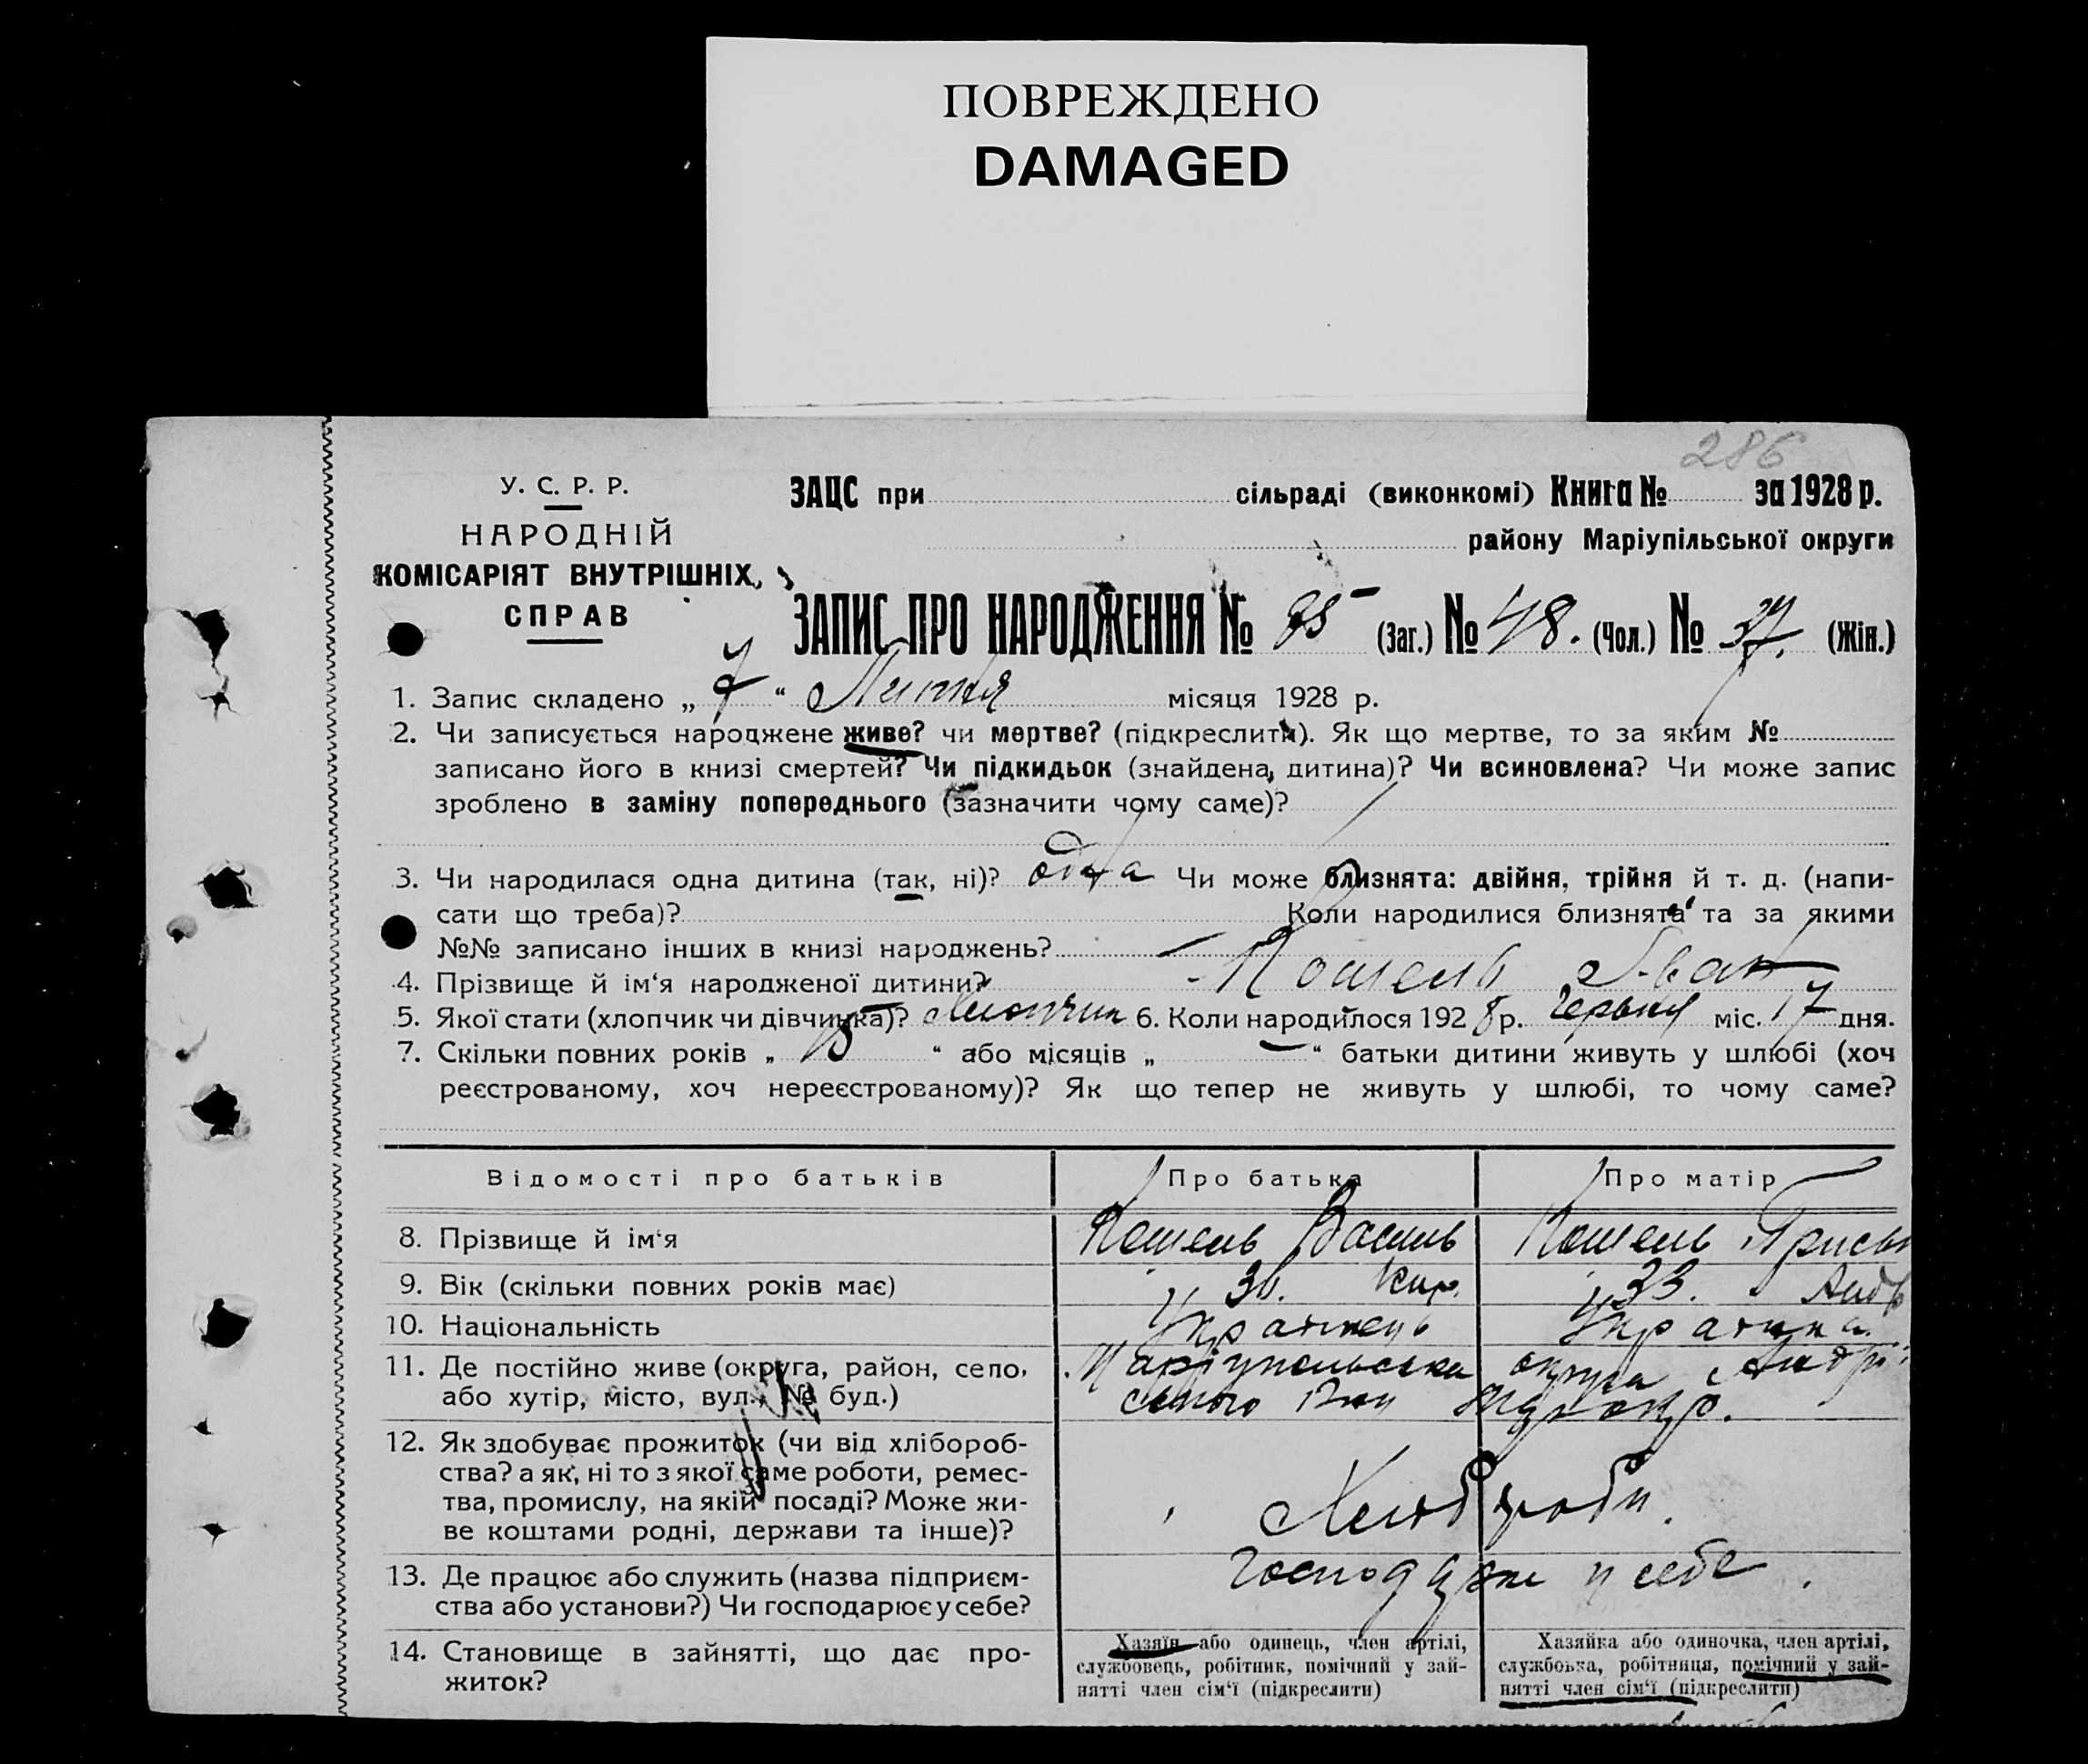 ПОВРЕЖДЕНО
DAMAGED
286
У. С. Р. Р.
НАРОДНІЙ
КОМІСАРІЯТ ВНУТРІШНІХ
СПРАВ
ЗАЦС при сільраді (виконкомі) Книга № за 1928 р.
району Маріупільської округи
ЗАПИС ПРО НАРОДЖЕННЯ № 85 (Заг.) № 48. (Чол.) № 37. (Жін.)
1. Запис складено „ 7 “ Липня місяця 1928 р.
2. Чи записується народжене живе? чи мертве? (підкреслити). Як що мертве, то за яким №
записано його в книзі смертей? Чи підкидьок (знайдена дитина)? Чи всиновлена? Чи може запис
зроблено в заміну попереднього (зазначити чому саме)?
3. Чи народилася одна дитина (так, ні)? одна Чи може близнята: двійня, трійня й т. д. (напи-
сати що треба)? Коли народилися близнята та за якими
№№ записано інших в книзі народжень?
4. Прізвище й ім‘я народженої дитини? Кошель Іван
5. Якої стати (хлопчик чи дівчинка)? Хлопчик 6. Коли народилося 192 8 р. Червня міс. 17 дня.
7. Скільки повних років „ 15 “ або місяців „ — “ батьки дитини живуть у шлюбі (хоч
реєстрованому, хоч нереєстрованому)? Як що тепер не живуть у шлюбі, то чому саме?
Відомості про батьків Про батька Про матір
8. Прізвище й ім‘я Кошель Василь Кошель Приська
9. Вік (скільки повних років має) 36. Кир. 33. Анд
10. Національність Українець Українка
11. Де постійно живе (округа, район, село, Маріупольська округа Андрі
або хутір, місто, вул., № буд.) ського
12. Як здобуває прожиток (чи від хлібороб-
ства? а як, ні то з якої саме роботи, ремес-
тва, промислу, на якій посаді? Може жи-
ве коштами родні, держави та інше)?
Хлібороби.
13. Де працює або служить (назва підприєм-
ства або установи?) Чи господарює у себе?
у себе.
14. Становище в зайнятті, що дає про-
житок?
Хазяїн або одинець, член артілі,
службовець, робітник, помічний у зай-
нятті член сім‘ї (підкреслити)
Хазяйка або одиночка, член артілі,
службовка, робітниця, помічний у зай-
нятті член сім‘ї (підкреслити)